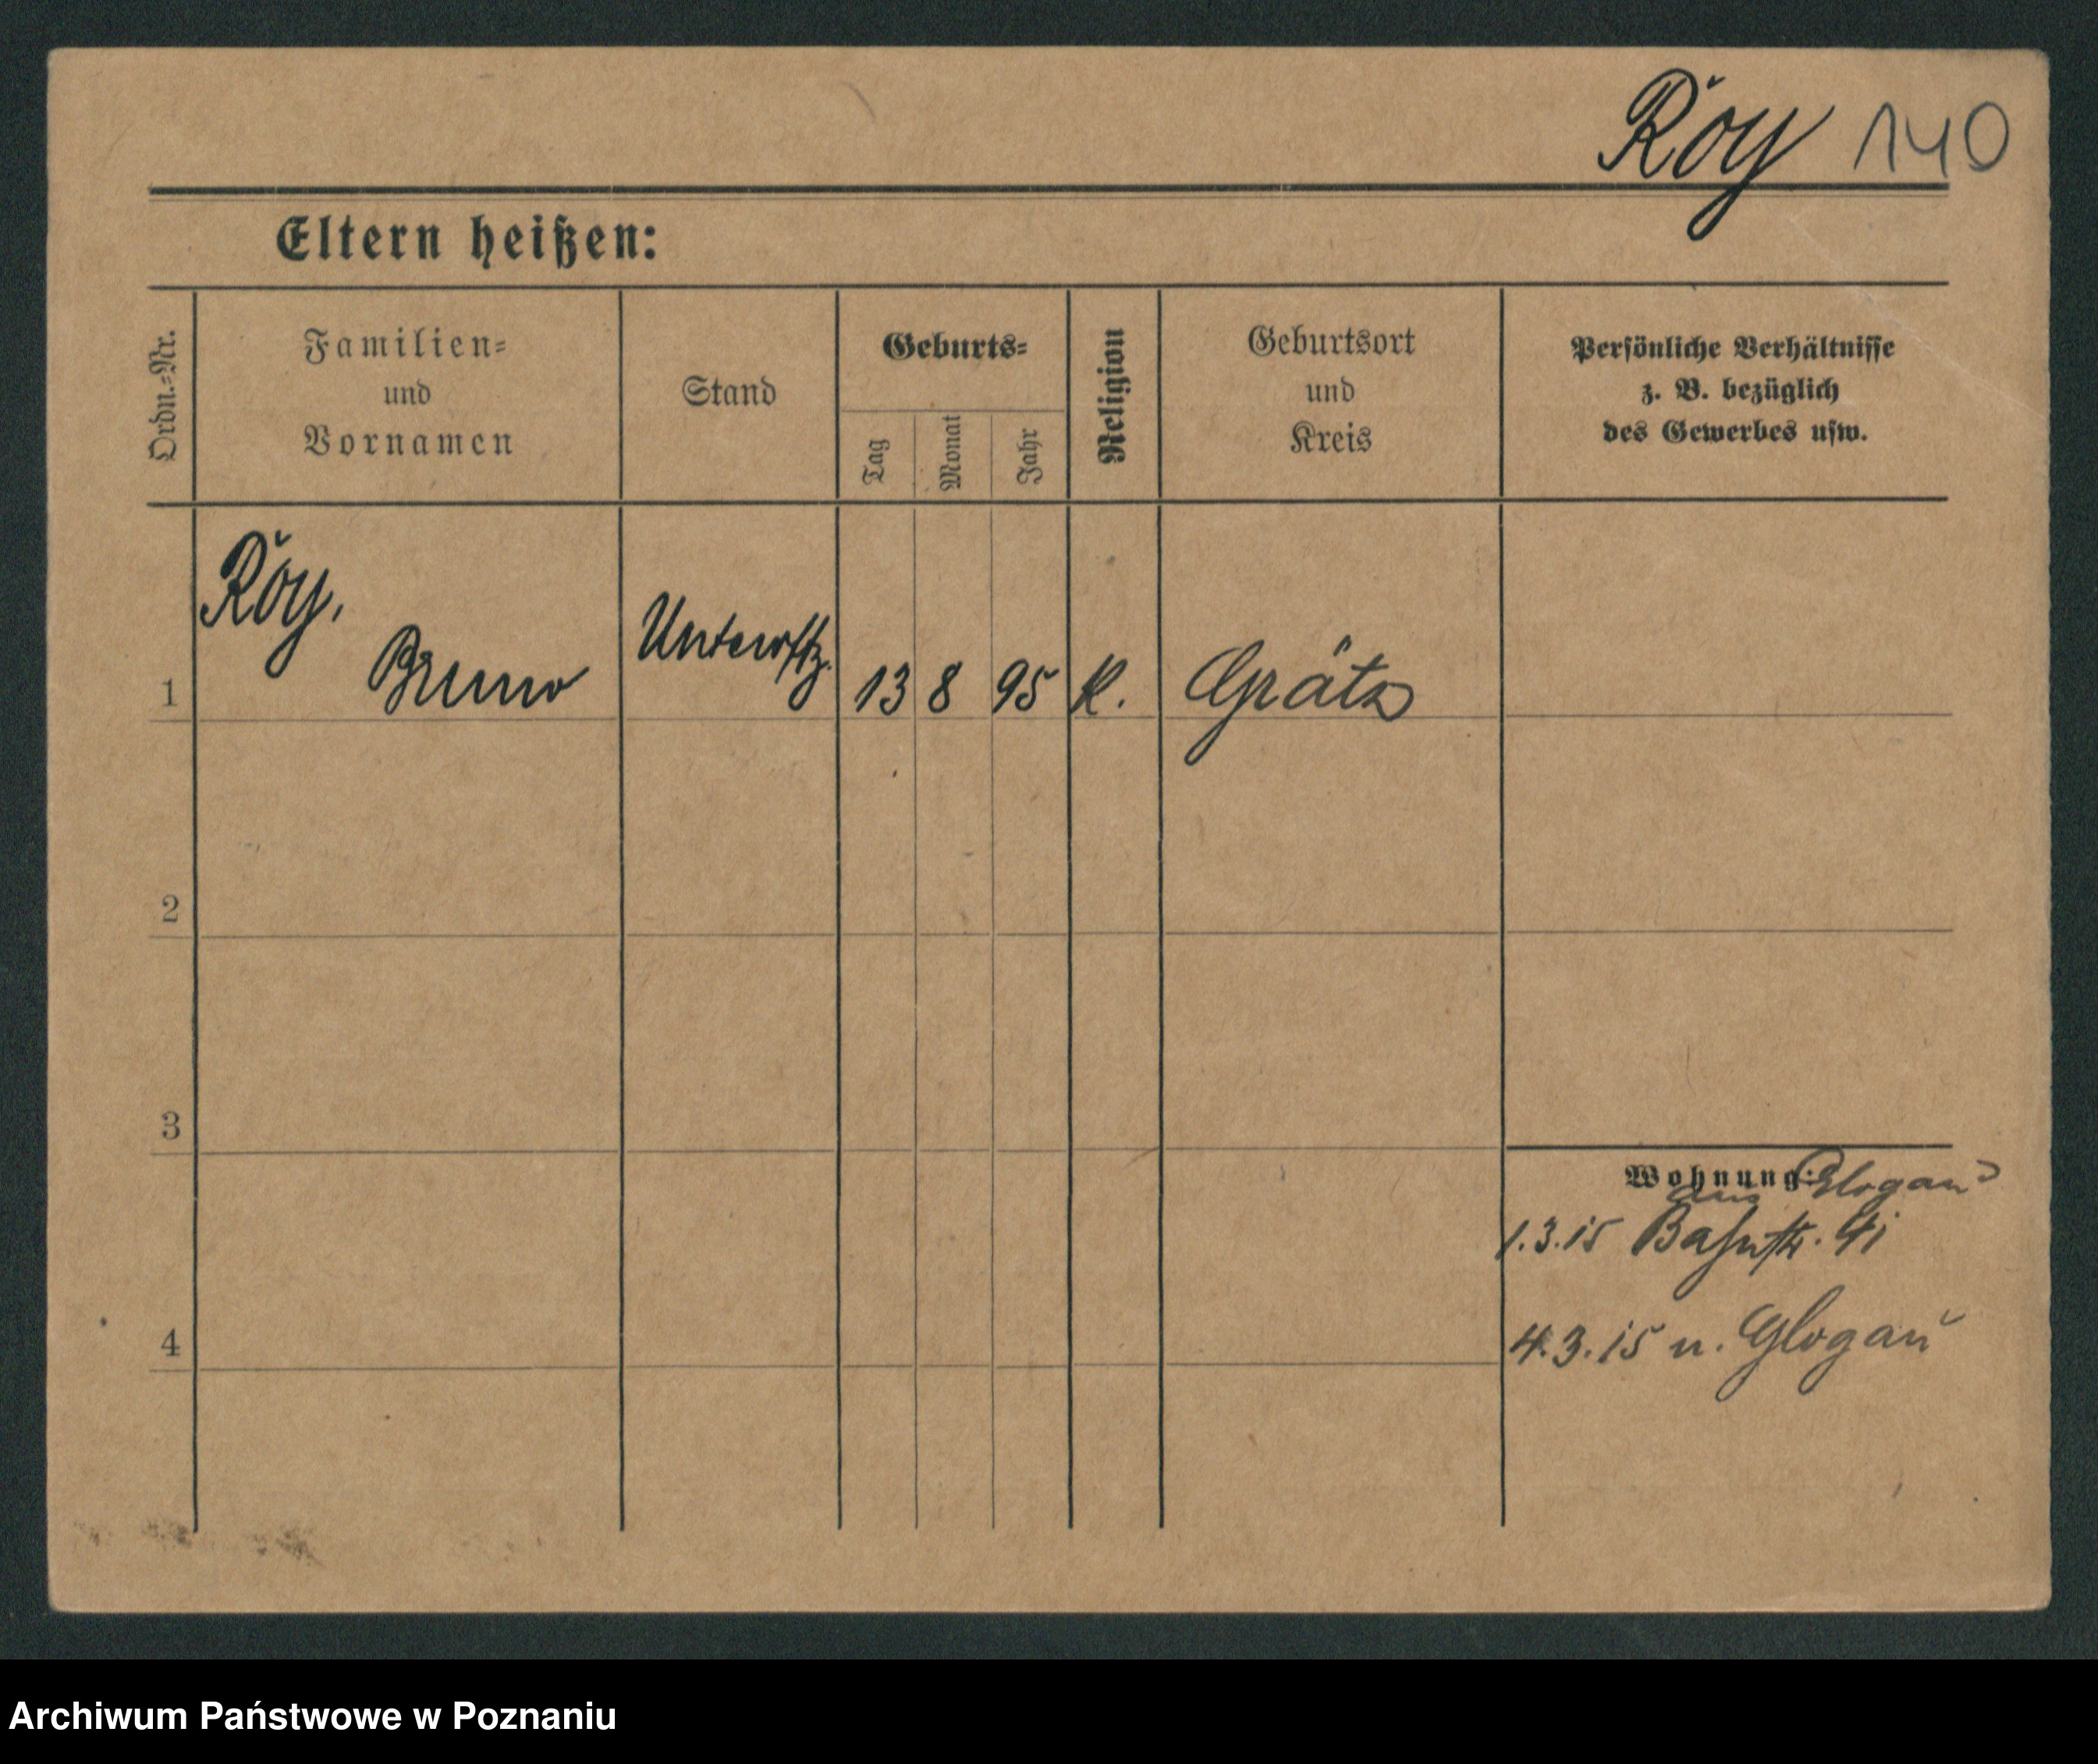 Roy 140
Eltern heißen:
Ordn.=Nr.
Familien=
und
Vornamen
Stand
Geburts=
Tag
Monat
Jahr
Religion
Geburtsort
und
Kreis
Persönliche Verhältnisse
z. B. bezüglich
des Gewerbes usw.
Roy,
1 Bruno 13 8 95 K. Grätz
2
3
Wohnung:
aus Glogau
1.3.15 Bahnstr. 41
4
4.3.15 n. Glogau
Archiwum Państwowe w Poznaniu